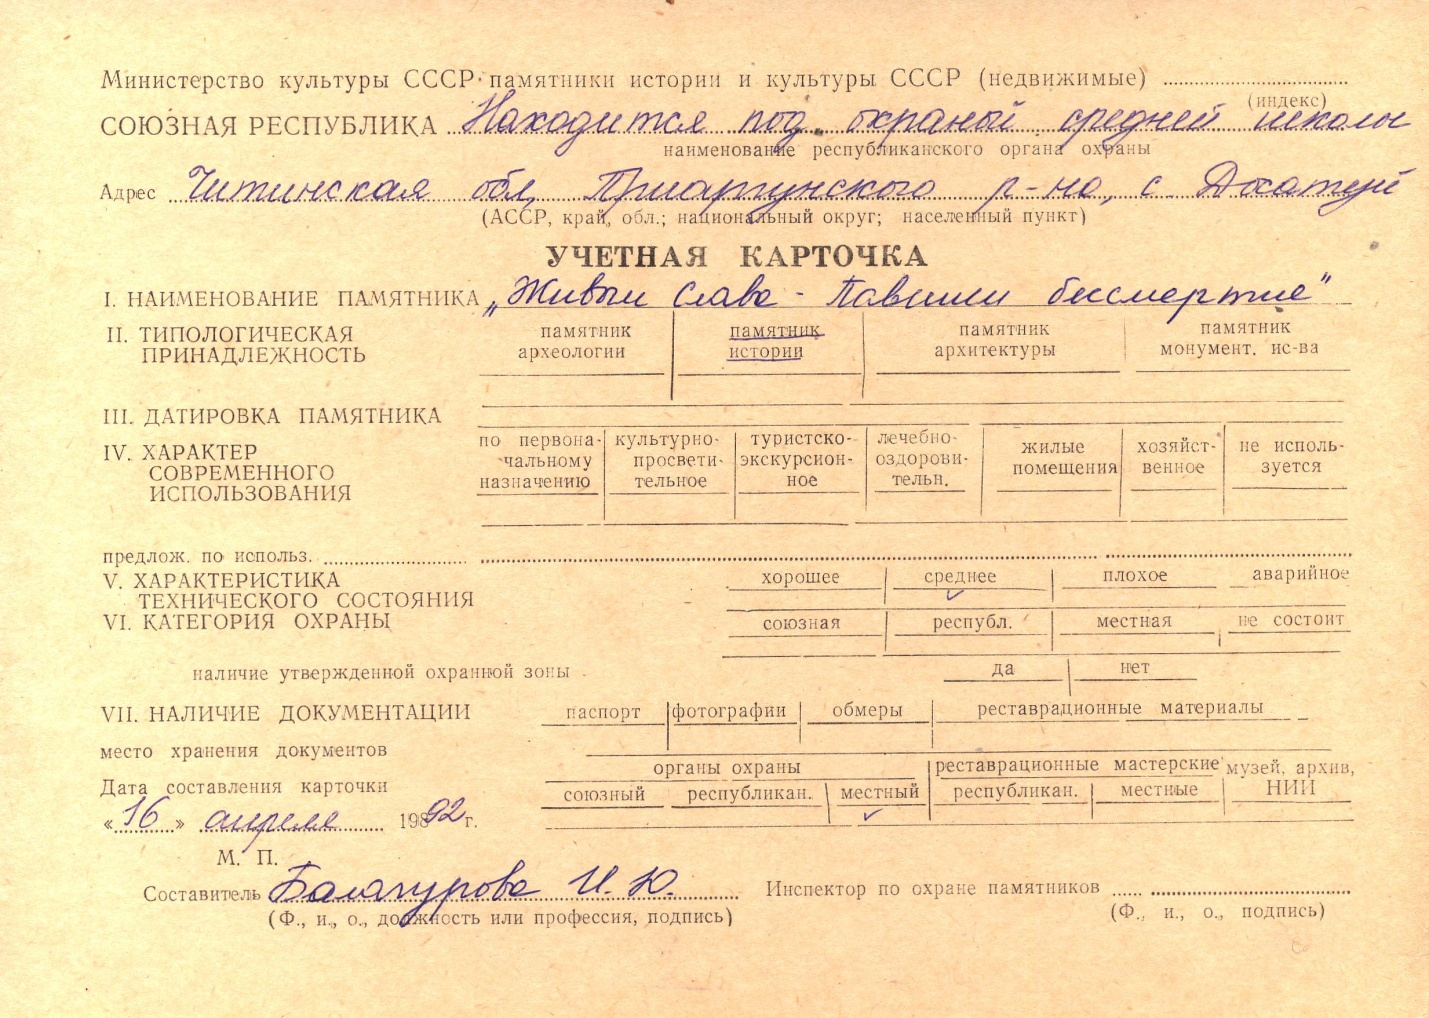 Министерство культуры СССР памятники истории и культуры СССР (недвижимые)
(индекс)
СОЮЗНАЯ РЕСПУБЛИКА Находится под охраный средней школы
наименование республиканского органа охраны
Адрес Читинская обл, Приаргунского р-на, с. Досатуй
(АССР, край, обл.; национальный округ; населенный пункт)
УЧЕТНАЯ КАРТОЧКА
I. НАИМЕНОВАНИЕ ПАМЯТНИКА „Живым слава - Павшим бессмертие"
II. ТИПОЛОГИЧЕСКАЯ ПРИНАДЛЕЖНОСТЬ
памятник археологии | памятник истории | памятник архитектуры | памятник монумент. ис-ва
III. ДАТИРОВКА ПАМЯТНИКА
IV. ХАРАКТЕР СОВРЕМЕННОГО ИСПОЛЬЗОВАНИЯ
по первона-чальному назначению | культурно-просвети-тельное | туристско-экскурсион-ное | лечебно-оздорови-тельн. | жилые помещения | хозяйст-венное | не исполь-зуется
предлож. по использ.
V. ХАРАКТЕРИСТИКА ТЕХНИЧЕСКОГО СОСТОЯНИЯ
хорошее | среднее | плохое | аварийное
VI. КАТЕГОРИЯ ОХРАНЫ
союзная | республ. | местная | не состоит
наличие утвержденной охранной зоны да | нет
VII. НАЛИЧИЕ ДОКУМЕНТАЦИИ паспорт | фотографии | обмеры | реставрационные материалы
место хранения документов
органы охраны | реставрационные мастерские | музей, архив, НИИ
Дата составления карточки
союзный | республикан. | местный | республикан. | местные
«16» апреля 1992 г.
М. П.
Составитель Балагурова И. Ю. Инспектор по охране памятников
(Ф., и., о., должность или профессия, подпись) (Ф., и., о., подпись)